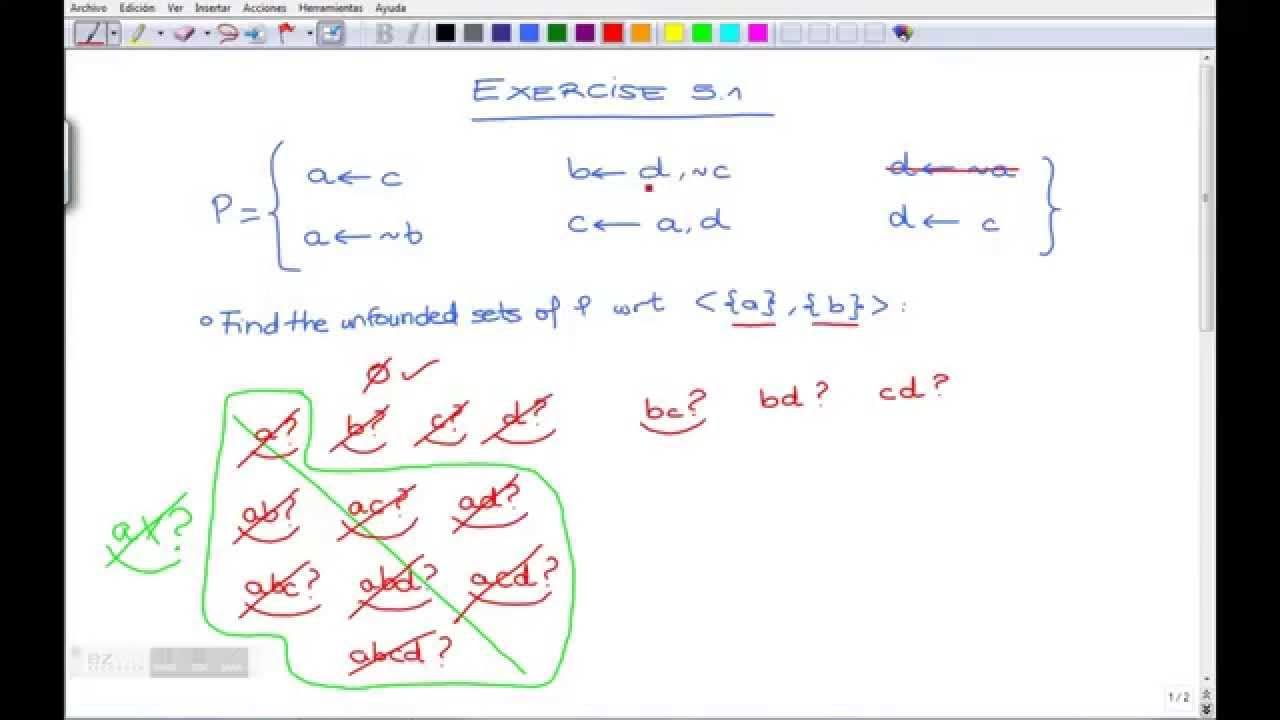 Archivo Edición Ver Insertar Acciones Herramientas Ayuda
B I
EXERCISE 5.1
P = { a ← c b ← d, ~c d ← ~a }
a ← ~b c ← a, d d ← c
Find the unfounded sets of P wrt <{a}, {b}> :
∅ ✓
a? b? c? d? bc? bd? cd?
ab? ac? ad?
ax?
abc? abd? acd?
abcd?
ez
1 / 2